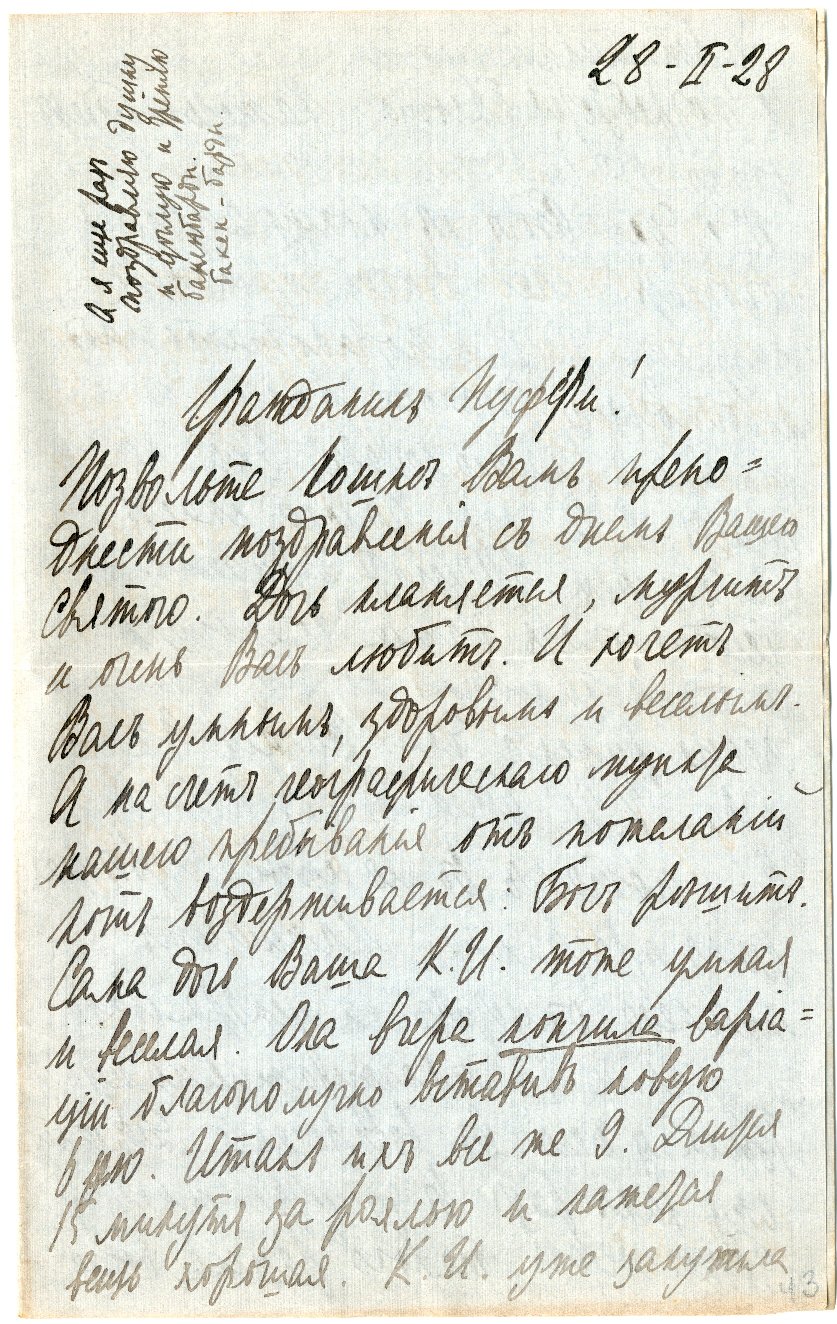 28-II-28
А я еще разъ
поздравляю душку
и цѣлую и грѣю
бакенбарди.
бакен-барди.
Гражданинъ Пуффи!
Позвольте кошкѣ Вамъ препо=
днести поздравленія съ днемъ Вашего
Святого. Дочь кланяется, мурчитъ
и очень Васъ любитъ. И хочетъ
Васъ умнымъ, здоровымъ и веселымъ.
А на счетъ географическаго пункта
нашего пребыванія отъ пожеланій
котъ воздерживается: Богъ рѣшитъ.
Сама дочь Ваша К.И. тоже умная
и веселая. Она вчера кончила варіа=
ціи благополучно вставивъ новую
6ую. Итакъ ихъ все же 9. Длится
15 минутъ за роялью и кажется
вещь хорошая. К.И. уже
43